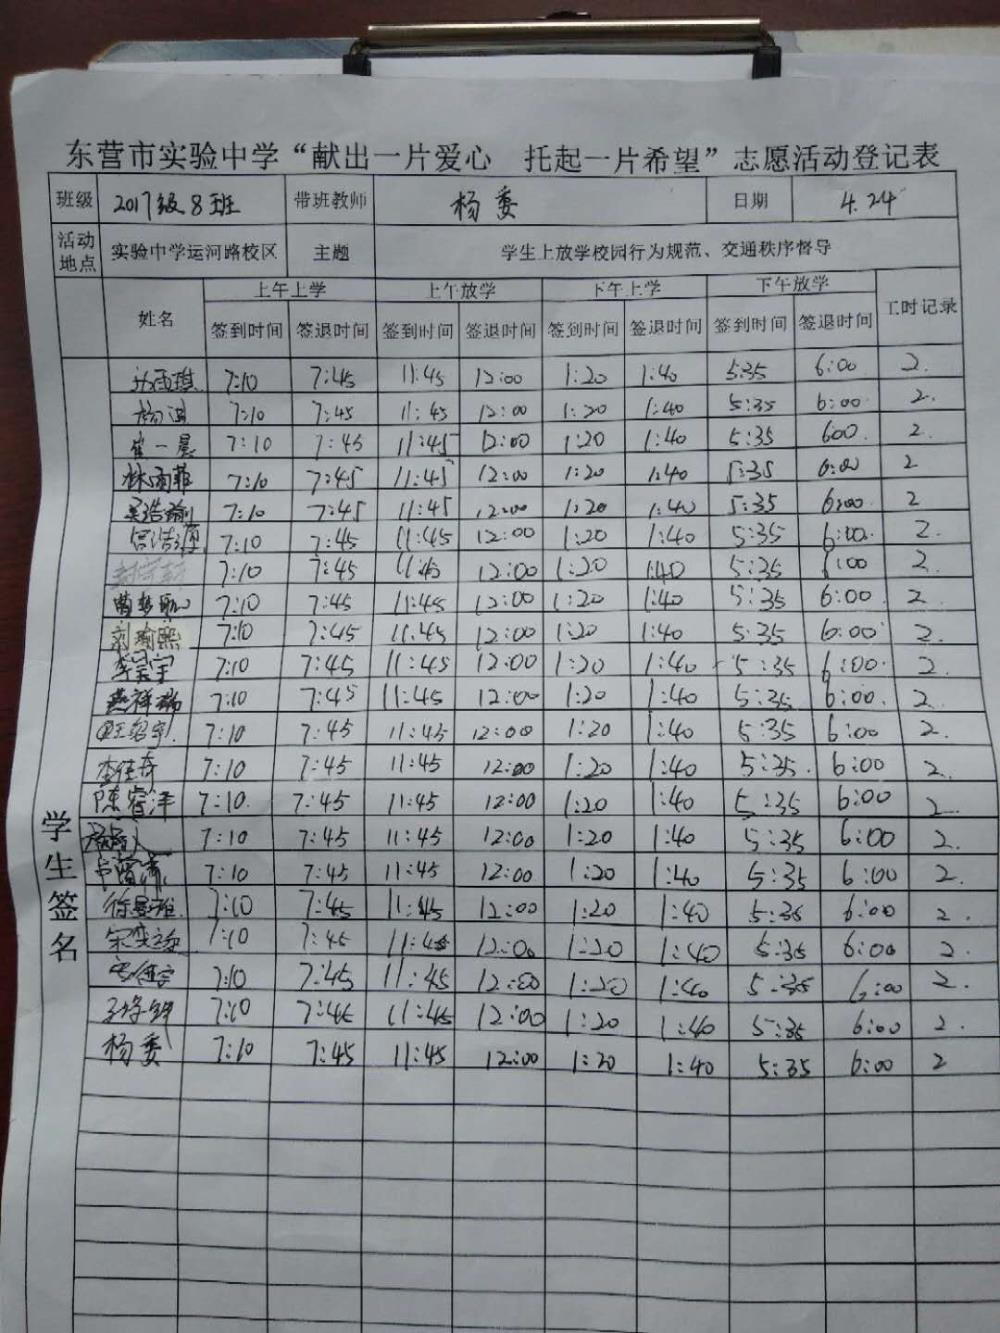 东营市实验中学“献出一片爱心 托起一片希望”志愿活动登记表
班级 2017级8班 带班教师 杨委 日期 4.24
活动地点 实验中学运河路校区 主题 学生上放学校园行为规范、交通秩序督导
姓名 上午上学 上午放学 下午上学 下午放学 工时记录
签到时间 签退时间 签到时间 签退时间 签到时间 签退时间 签到时间 签退时间
学生签名
7:10 7:45 11:45 12:00 1:20 1:40 5:35 6:00 2.
7:10 7:45 11:45 12:00 1:20 1:40 5:35 6:00 2.
崔一晨 7:10 7:45 11:45 12:00 1:20 1:40 5:35 600 2.
林雨菲 7:10 7:45 11:45 12:00 1:20 1:40 5:35 6:00 2
吴浩瑜 7:10 7:45 11:45 12:00 1:20 1:40 5:35 6:00 2
7:10 7:45 11:45 12:00 1:20 1:40 5:35 6:00 2.
7:10 7:45 11:45 12:00 1:20 1:40 5:35 6:00 2
7:10 7:45 11:45 12:00 1:20 1:40 5:35 6:00 2.
刘瑜熙 7:10 7:45 11:45 12:00 1:20 1:40 5:35 6:00 2.
李昊宇 7:10 7:45 11:45 12:00 1:20 1:40 5:35 6:00 2.
燕祥瑞 7:10 7:45 11:45 12:00 1:20 1:40 5:35 6:00 2.
7:10 7:45 11:45 12:00 1:20 1:40 5:35 6:00 2.
李佳奇 7:10 7:45 11:45 12:00 1:20 1:40 5:35 6:00 2.
陈睿洋 7:10 7:45 11:45 12:00 1:20 1:40 5:35 6:00 2.
7:10 7:45 11:45 12:00 1:20 1:40 5:35 6:00 2.
7:10 7:45 11:45 12:00 1:20 1:40 5:35 6:00 2.
7:10 7:45 11:45 12:00 1:20 1:40 5:35 6:00 2.
7:10 7:45 11:45 12:00 1:20 1:40 5:35 6:00 2.
7:10 7:45 11:45 12:00 1:20 1:40 5:35 6:00 2.
7:10 7:45 11:45 12:00 1:20 1:40 5:35 6:00 2.
杨委 7:10 7:45 11:45 12:00 1:20 1:40 5:35 6:00 2